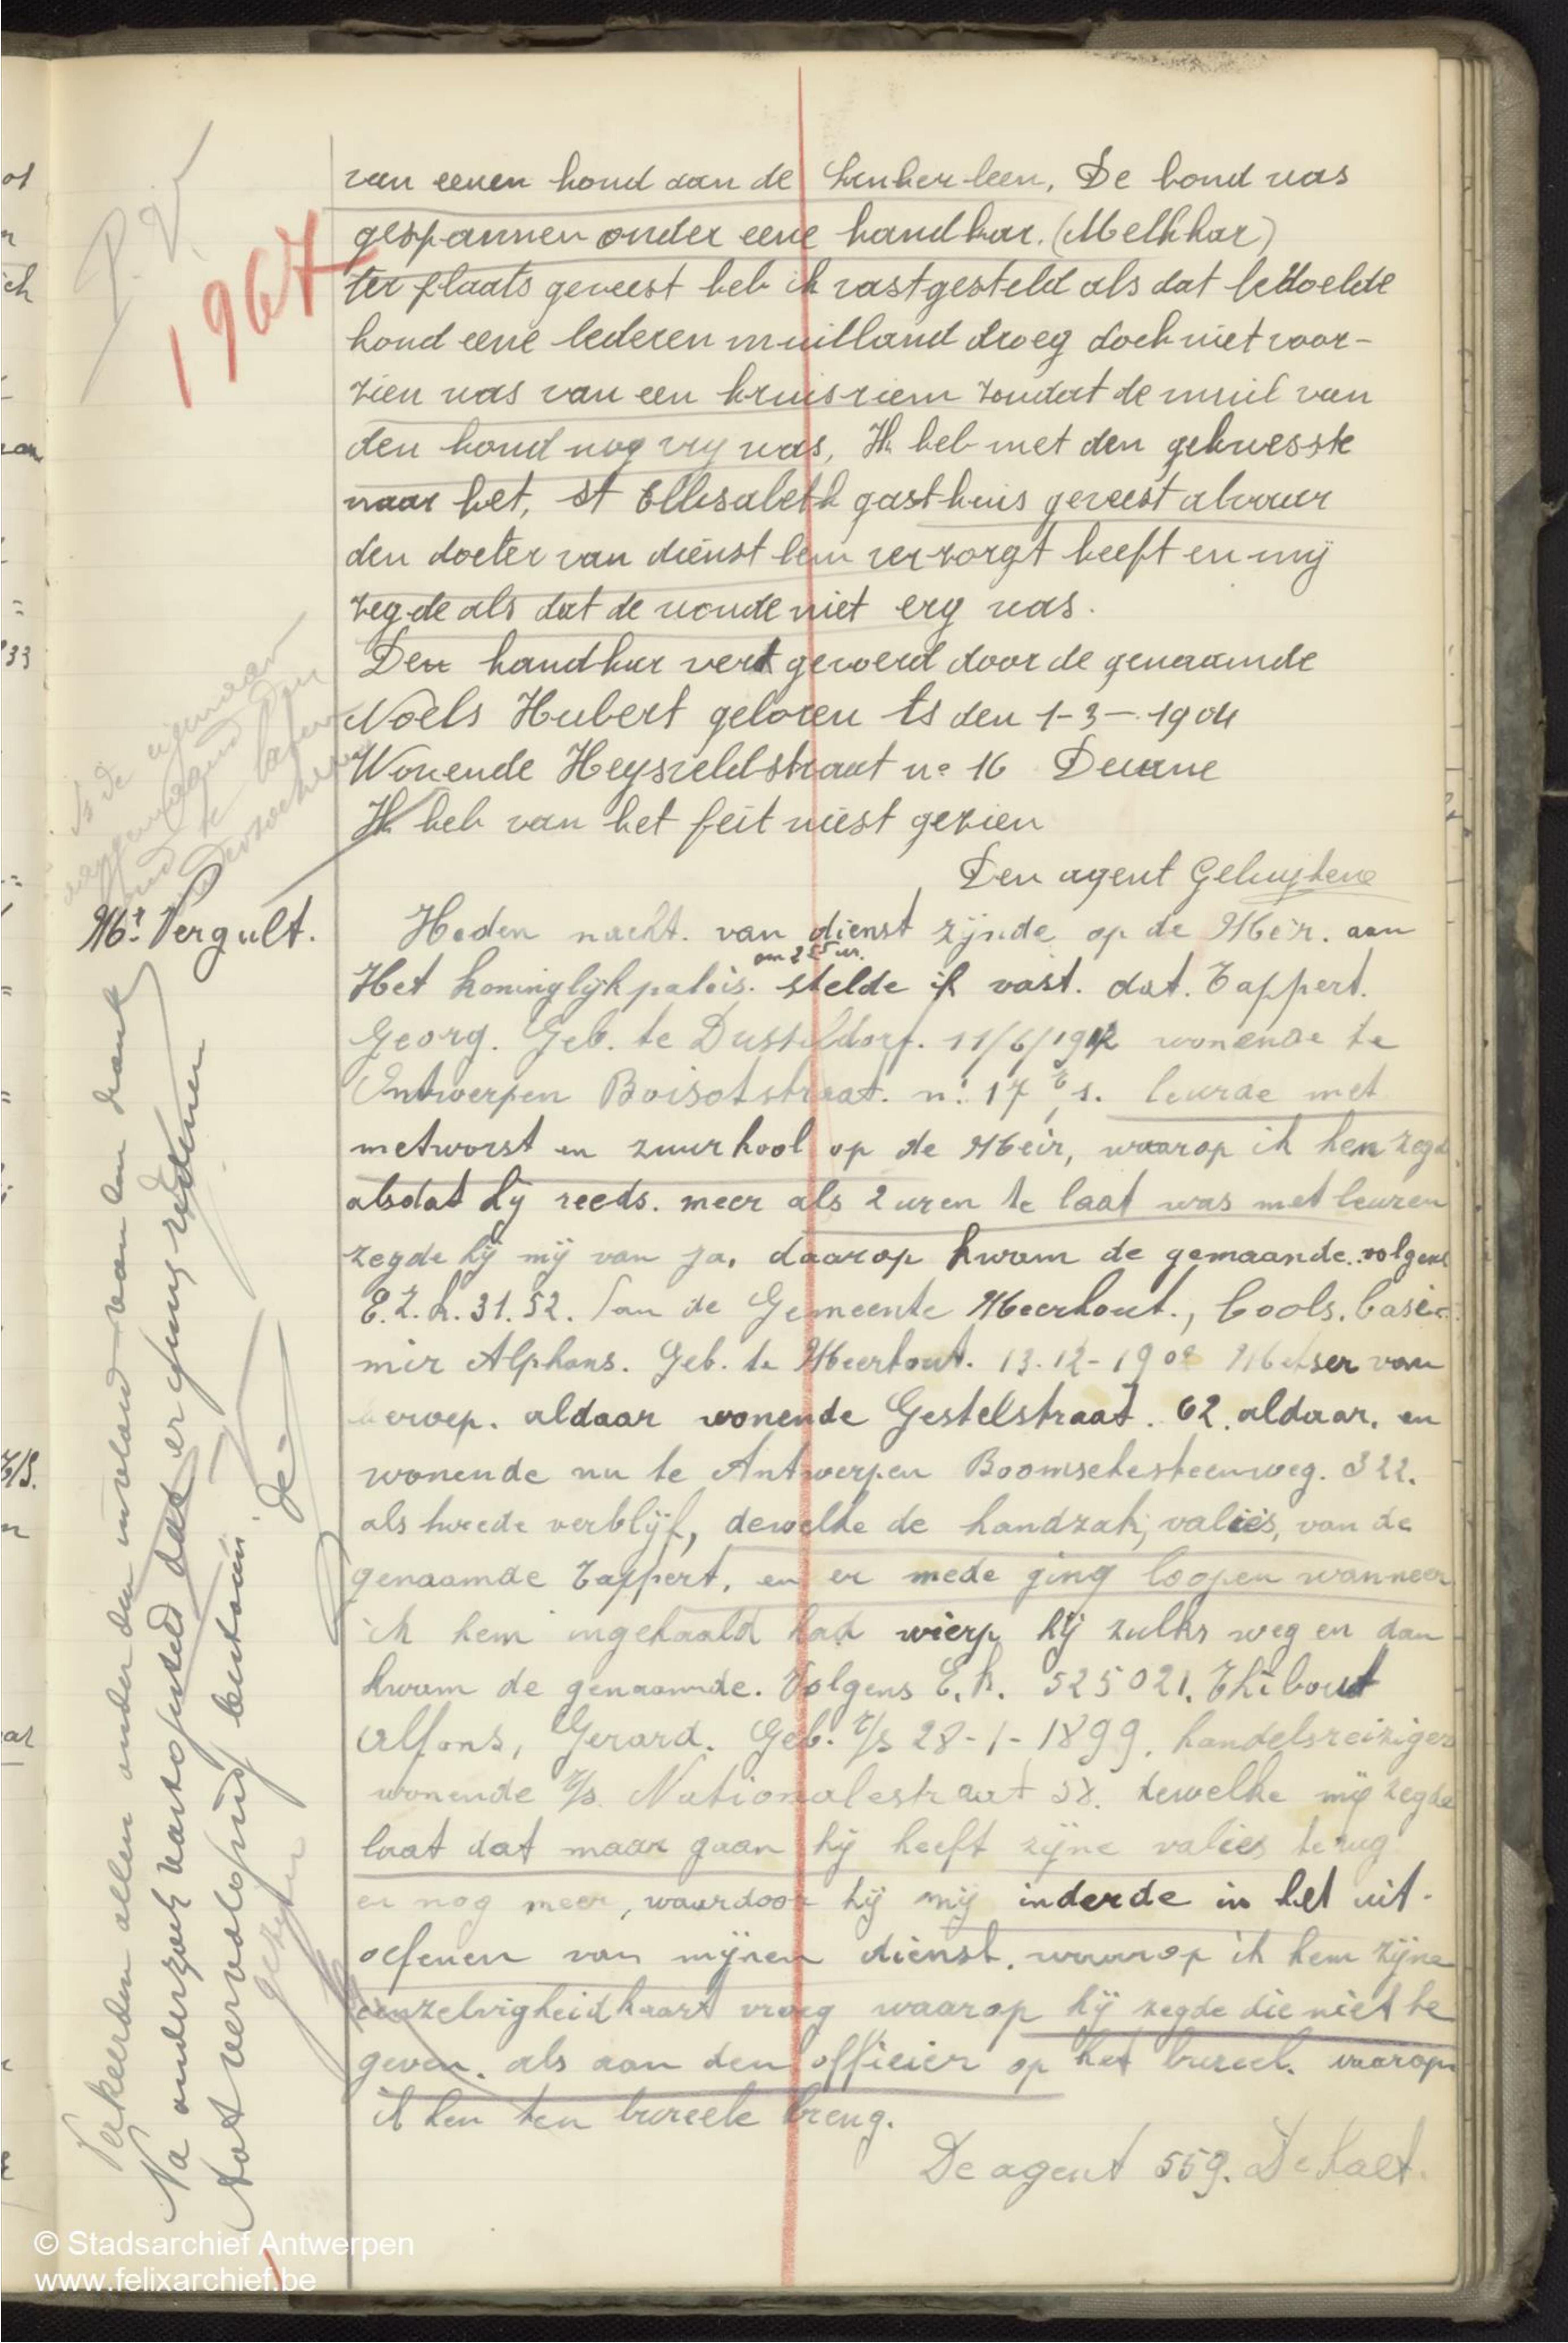 P.V.
1967
van eenen hond aan de linker been, De hond was
gespannen onder eene handkar. (Melkkar)
ter plaats geweest heb ik vastgesteld als dat bedoelde
hond eene lederen muilband droeg doch niet voor-
zien was van een kruisriem zoodat de muil van
den hond nog vry was, Ik heb met den gekwesste
naar het, st Ellisabeth gasthuis geweest alwaar
den docter van dienst hem verzorgt heeft en mij
zegde als dat de wonde niet erg was.
Den handkar werd gevoerd door de genaamde
Noels Hubert geboren ts den 1-3-1904
Wonende Heysveldstraat no 16 Deurne
Ik heb van het feit niest gezien
Den agent
Mr. Vergult.
Heden nacht. van dienst zijnde op de Meir. aan
om 2 55 ur.
Het koninglijkpaleis. stelde ik vast. dat. Tappert.
Georg. Geb. te Dusseldorf. 11/6/1912 wonende te
Antwerpen Boisotstraat. n: 17 ts. leurde met
metworst en zuurkool op de Meir, waarop ik hem zegd
alsdat hij reeds. meer als 2 uren te laat was met leuren
zegde hij mij van ja, daarop kwam de gemaande. volgens
E.Z.K. 31.52. Van de Gemeente Meerhout., Cools. Casie-
mir Alphons. Geb. te Meerhout. 13.12-1908 Metser van
beroep. aldaar wonende Gestelstraat. 62. aldaar. en
wonende nu te Antwerpen Boomschesteenweg. 322.
als tweede verblijf, dewelke de handzak, valiès, van de
genaamde Tappert, en er mede ging loopen wanneer
ik hem ingehaald had wierp hij zulks weg en dan
kwam de genaamde. Volgens E.K. 525021. Thibout
Alfons, Gerard. Geb. t/s 28-1-1899. handelsreiziger
wonende t/s. Nationalestraat 58. dewelke mij zegde
laat dat maar gaan hij heeft zijne valies terug
en nog meer, waardoor hij mij inderde in het uit-
oefenen van mijnen dienst. waarop ik hem zijne
eenzelvigheidkaart vroeg waarop hij zegde die niet te
geven. als aan den officier op het bureel. waarop
ik hen ten bureele breng.
De agent 559. De Raet.
Verkeerden allen onder den invloed van den drank
Na onderzoek vastgesteld dat er geene redenen
tot vervolging bestaan.
© Stadsarchief Antwerpen
www.felixarchief.be